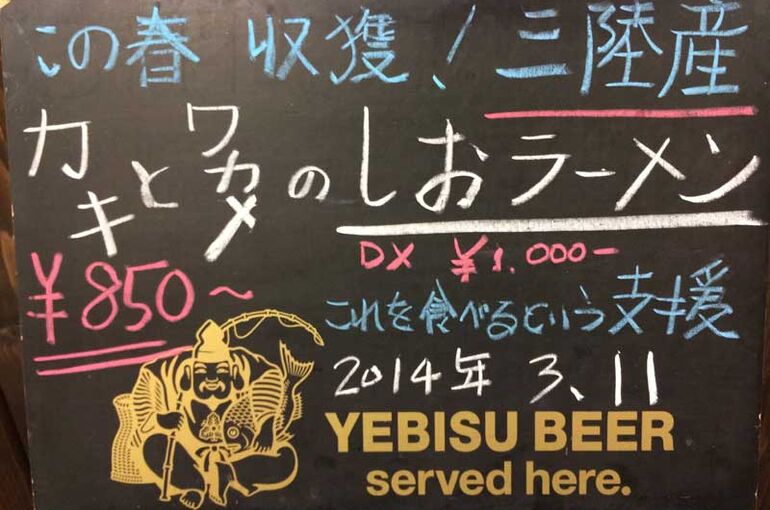 この春 収獲！三陸産
カキとワカメのしおラーメン
DX ¥1.000-
¥850～
これを食べるという支援
2014年 3.11
YEBISU BEER
served here.